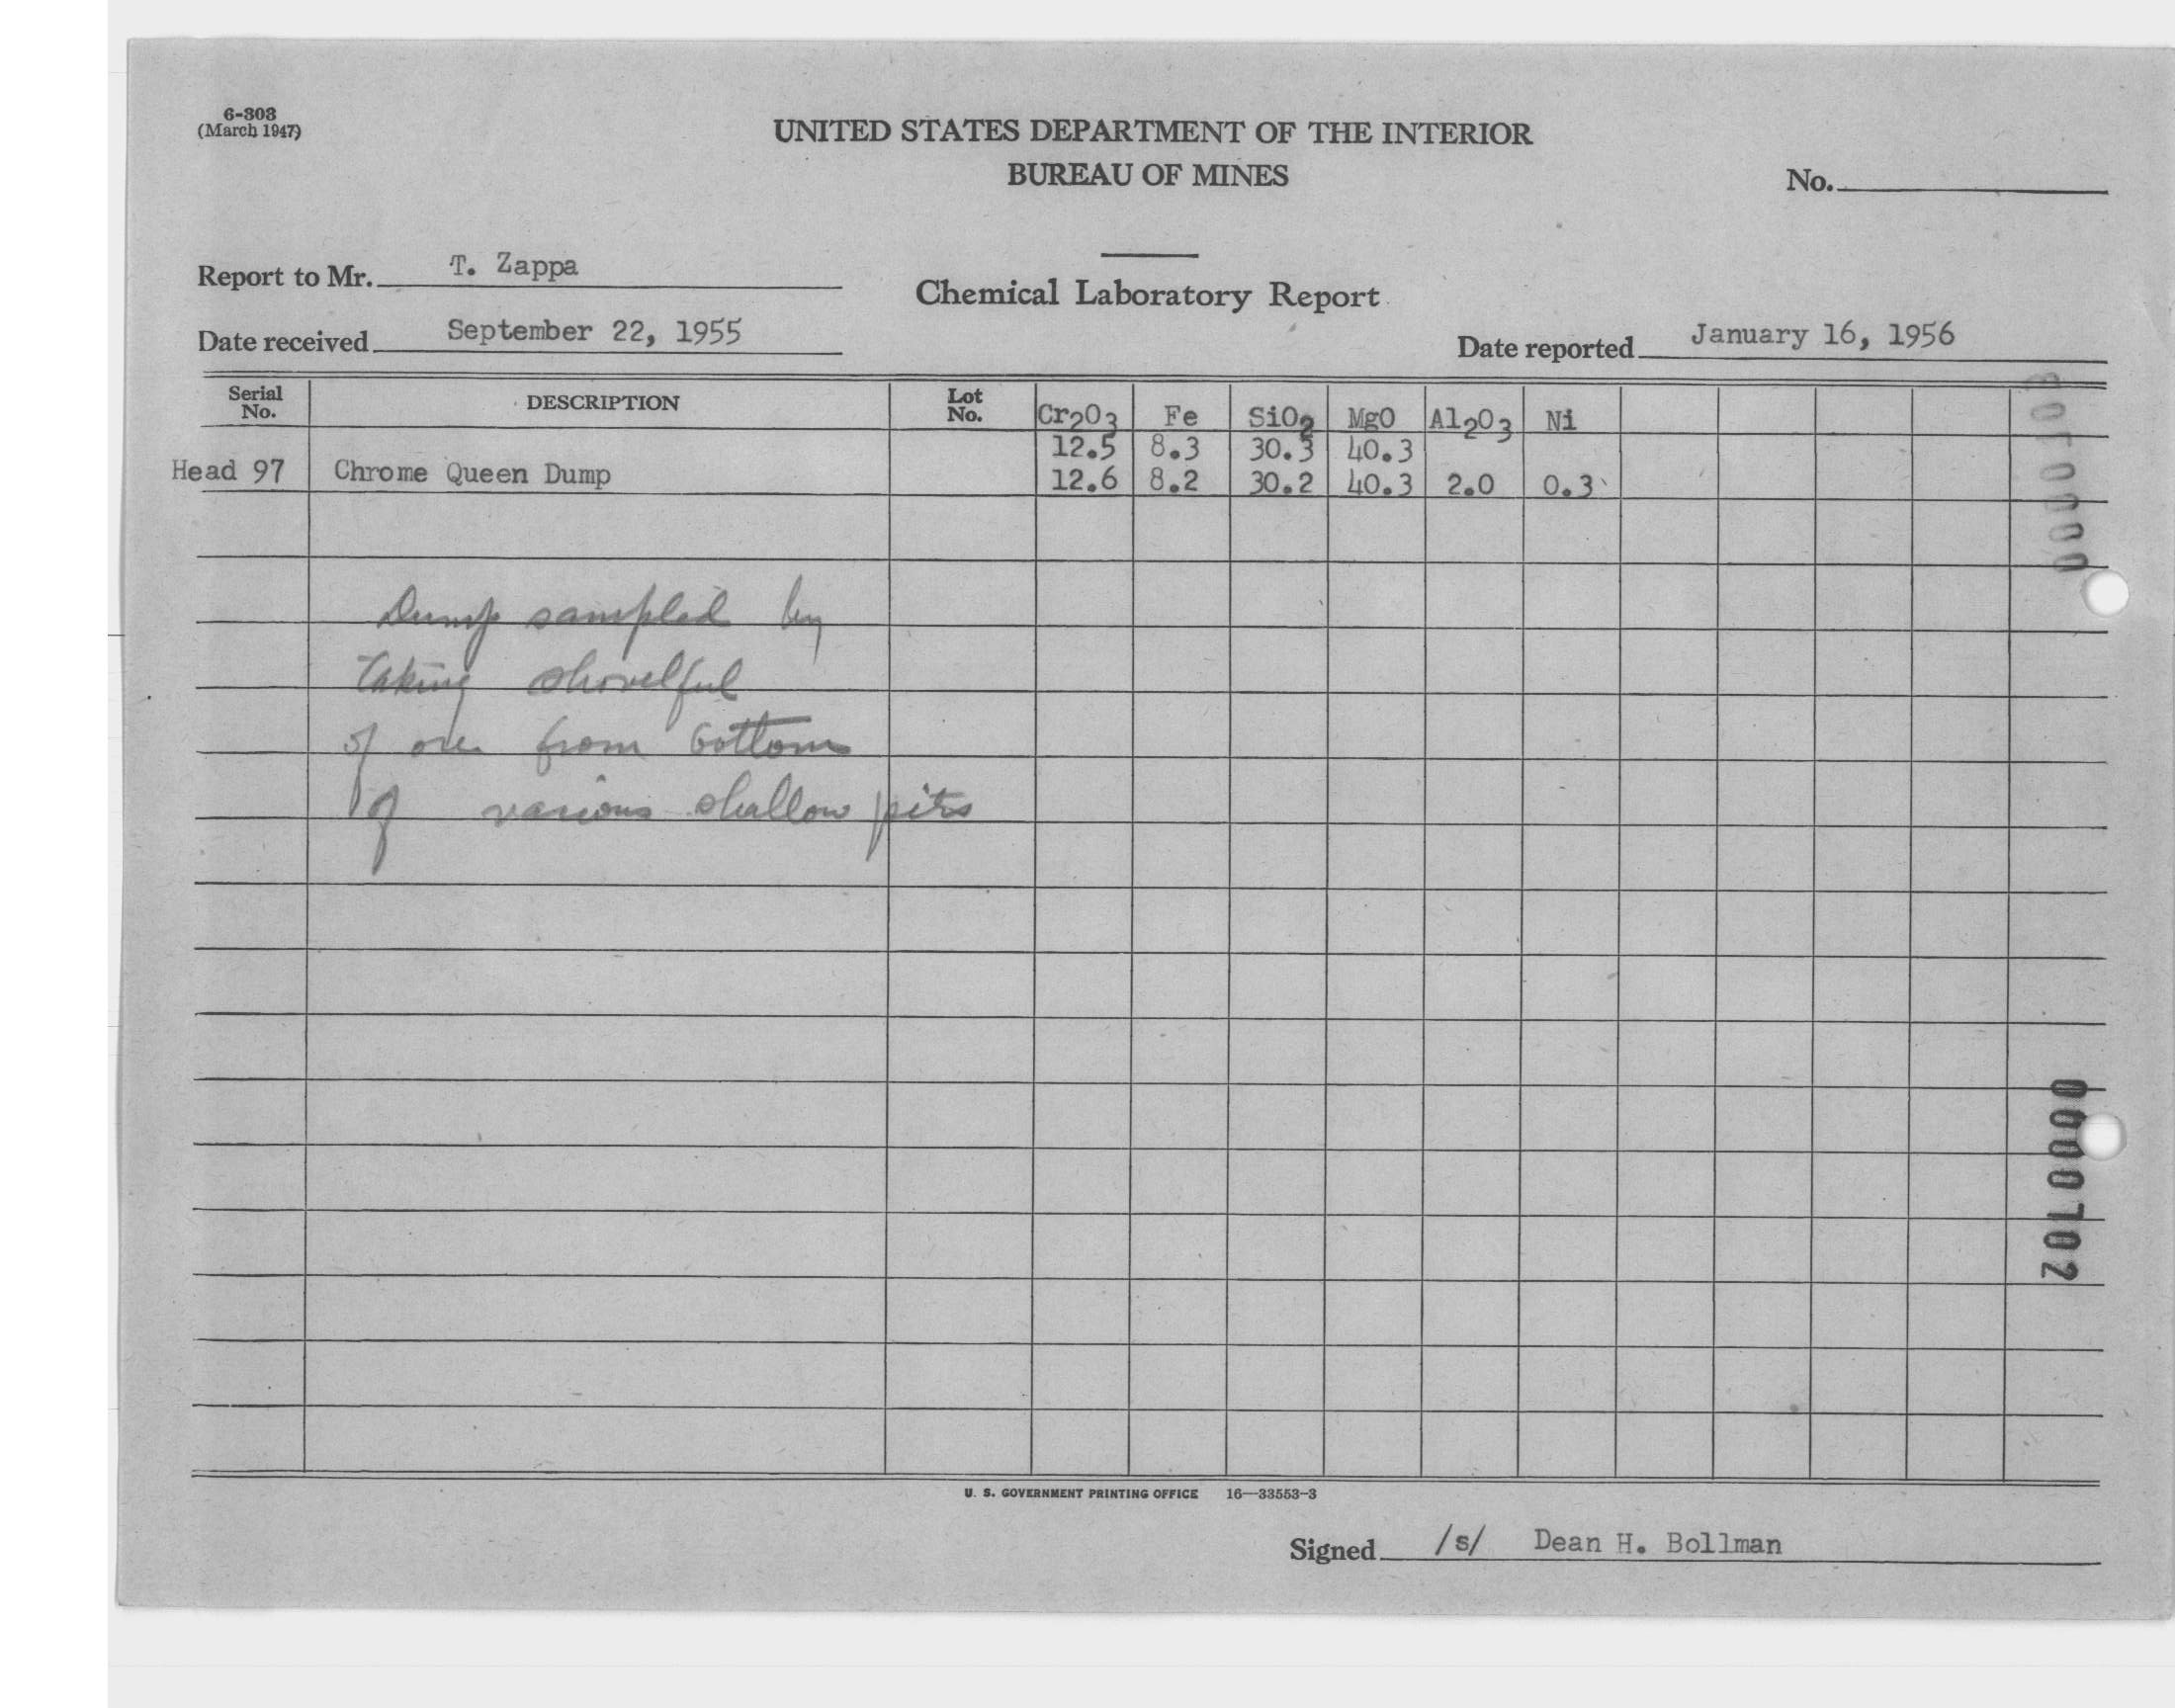 6-303
(March 1947)
UNITED STATES DEPARTMENT OF THE INTERIOR
BUREAU OF MINES
No.
Report to Mr. T. Zappa
Chemical Laboratory Report
Date received September 22, 1955
Date reported January 16, 1956
Serial No. DESCRIPTION Lot No. Cr2O3 Fe SiO2 MgO Al2O3 Ni
12.5 8.3 30.3 40.3
Head 97 Chrome Queen Dump 12.6 8.2 30.2 40.3 2.0 0.3
Dump sampled by
taking shovelful
of ore from bottom
of various shallow pits
0000702
U. S. GOVERNMENT PRINTING OFFICE 16—33553-3
Signed /s/ Dean H. Bollman